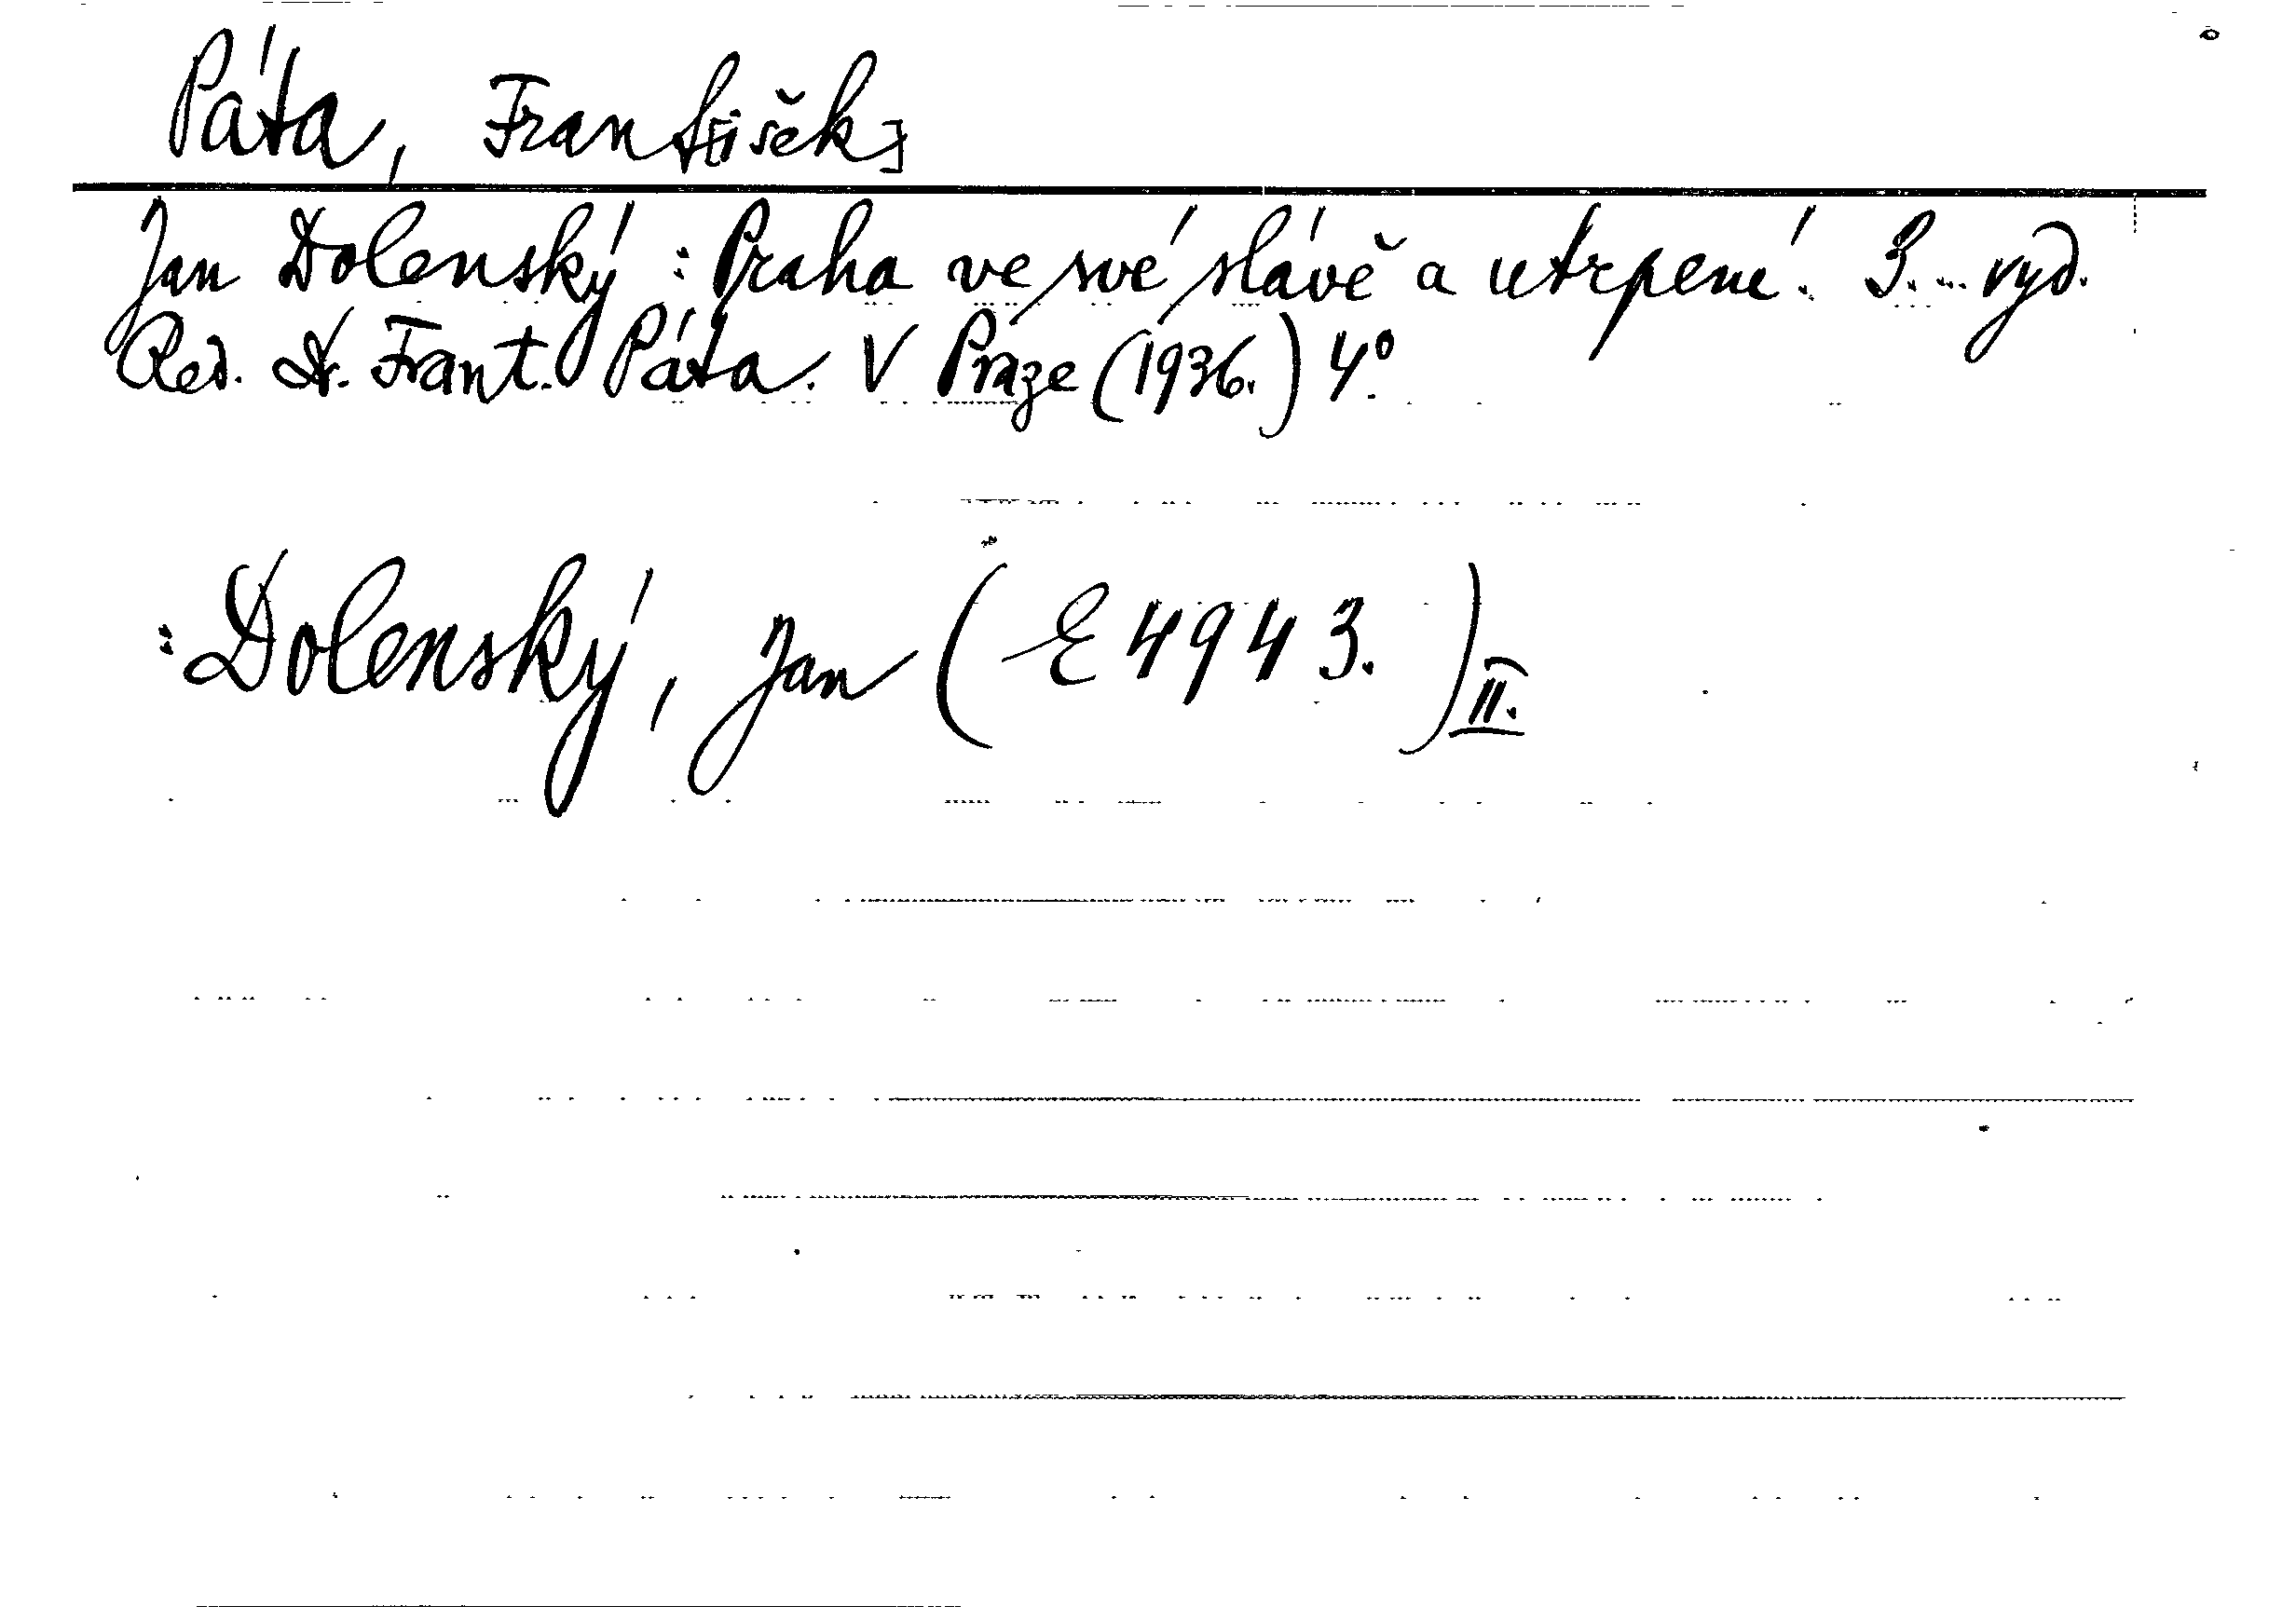 Páta, Frant[išek]
Jan Dolenský: Praha ve své slávě a utrpení. 3. ... vyd.
Red. Dr. Frant. Páta. V Praze (1936.) 4°.
: Dolenský, Jan (E 4943.) II.